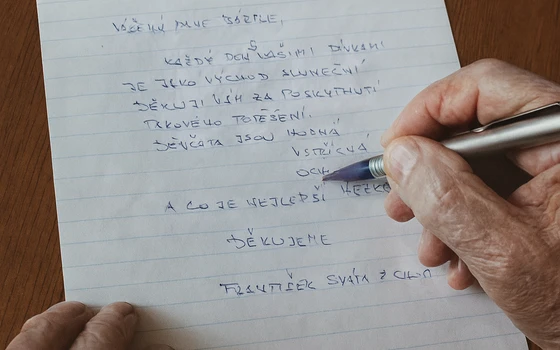 VÁŽENÝ PANE
KAŽDÝ DEN S VAŠIMI DÍVKAMI
JE JAKO VÝCHOD SLUNEČNÍ
DĚKUJI VÁM ZA POSKYTNUTÍ
TAKOVÉHO POTĚŠENÍ.
DĚVČATA JSOU HODNÁ
VSTŘÍCNÁ
A CO JE NEJLEPŠÍ HEZKÁ
DĚKUJEME
FRANTIŠEK SVÁTA Z